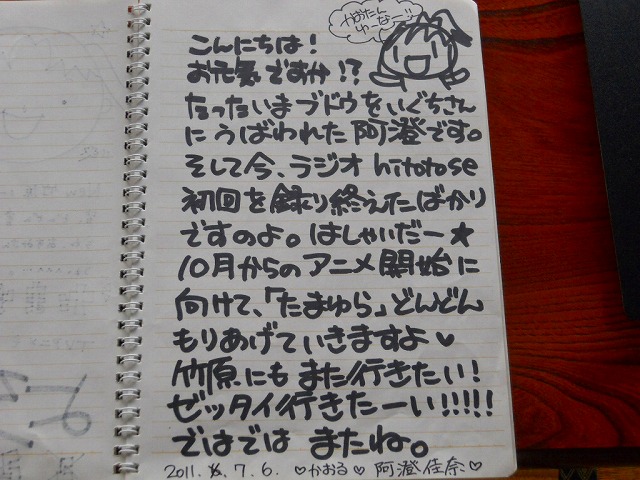 かおたん
ゆーなーう
こんにちは!
お元気ですか!?
たったいまブドウをいぐちさん
にうばわれた阿澄です。
そして今、ラジオhitotose
初回を録り終えたばかり
ですのよ。はしゃいだー★
10月からのアニメ開始に
向けて、「たまゆら」どんどん
もりあげていきますよ♥
竹原にもまた行きたい!
ゼッタイ行きたーい!!!!!
ではでは またね。
2011. 7. 6. ♡かおる♡ 阿澄佳奈♡